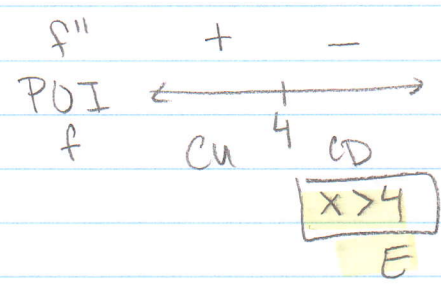 f" + —
POI
4
f CU CD
x>4
E